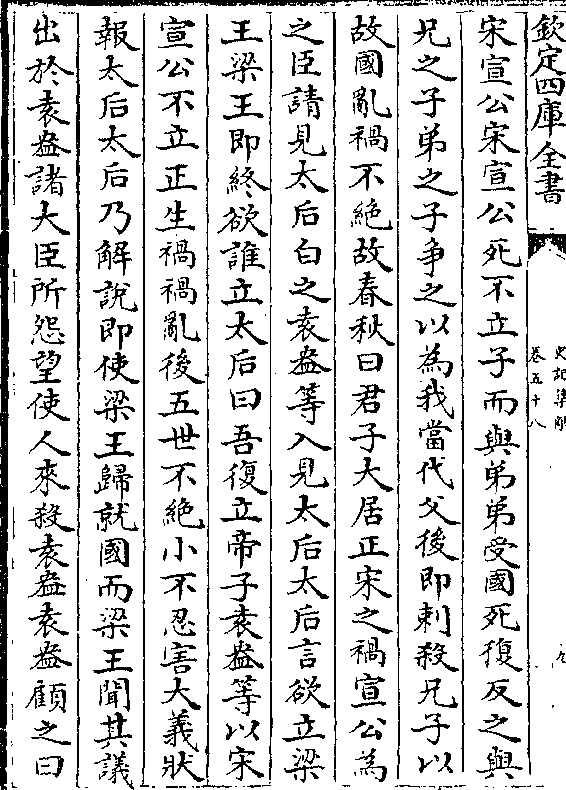 欽定四庫全書
史記集解
卷五十八
九
宋宣公宋宣公死不立子而與弟弟受國死復反之與
兄之子弟之子爭之以為我當代父後即刺殺兄子以
故國亂禍不絶故春秋曰君子大居正宋之禍宣公為
之臣請見太后白之袁盎等入見太后太后言欲立梁
王梁王即終欲誰立太后曰吾復立帝子袁盎等以宋
宣公不立正生禍禍亂後五世不絶小不忍害大義狀
報太后太后乃解說即使梁王歸就國而梁王聞其議
出於袁盎諸大臣所怨望使人來殺袁盎袁盎顧之曰